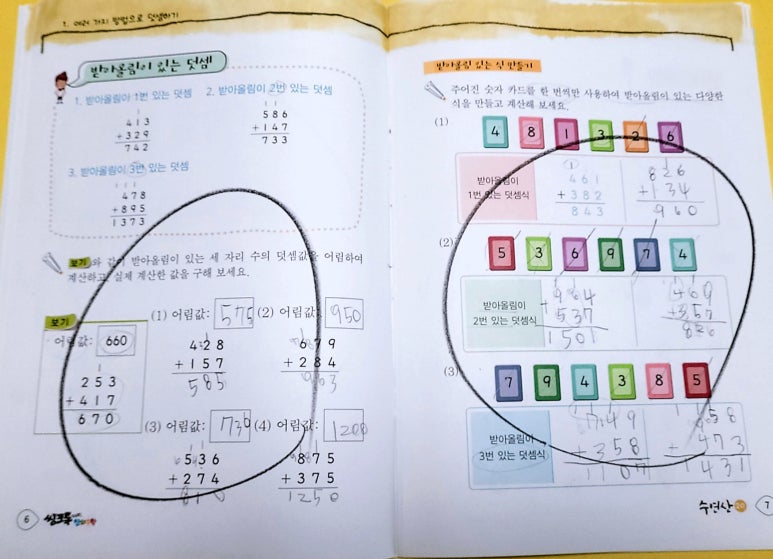 1. 여러 가지 방법으로 덧셈하기
받아올림이 있는 덧셈
1. 받아올림이 1번 있는 덧셈
1
413
+329
742
2. 받아올림이 2번 있는 덧셈
1 1
586
+147
733
3. 받아올림이 3번 있는 덧셈
1 1 1
478
+895
1373
보기 와 같이 받아올림이 있는 세 자리 수의 덧셈값을 어림하여
계산하고, 실제 계산한 값을 구해 보세요.
보기
어림값: 660
1
253
+417
670
(1) 어림값: 575
1
428
+157
585
(2) 어림값: 950
679
+284
963
(3) 어림값: 730
536
+274
810
(4) 어림값: 1200
875
+375
1250
6
받아올림 있는 식 만들기
주어진 숫자 카드를 한 번씩만 사용하여 받아올림이 있는 다양한
식을 만들고 계산해 보세요.
(1)
4 8 1 3 2 6
받아올림이
1번 있는 덧셈식
1
461
+382
843
826
+134
960
(2)
5 3 6 9 7 4
받아올림이
2번 있는 덧셈식
964
+537
1501
469
+357
826
(3)
7 9 4 3 8 5
받아올림이
3번 있는 덧셈식
749
+358
1107
958
+473
1431
수연산
7